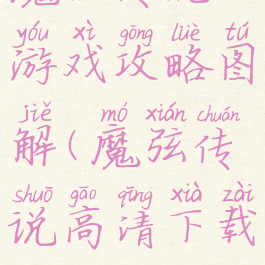 yóu xì gōng lüè tú
游戏攻略图
jiě mó xián chuán
解(魔弦传
shuō gāo qīng xià zài
说高清下载